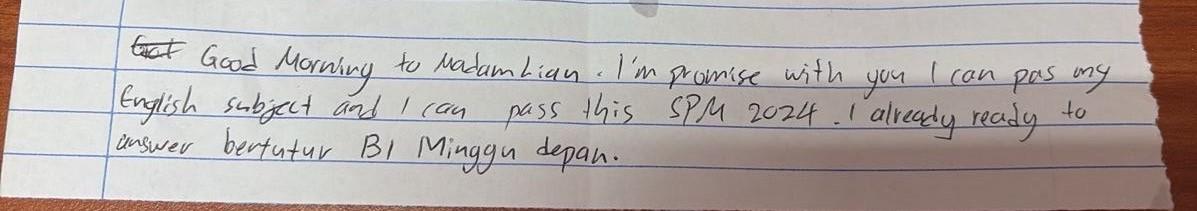 Good Morning to Madam Lian. I'm promise with you I can pas my
English subject and I can pass this SPM 2024. I already ready to
answer bertutur BI Minggu depan.